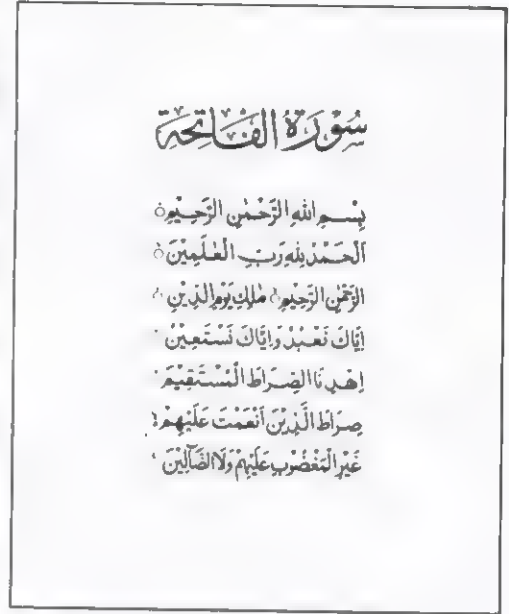 سُوْرَةُ الْفَاتِحَة
بِسْمِ اللهِ الرَّحْمٰنِ الرَّحِيْمِ ۝
اَلْحَمْدُ لِلّٰهِ رَبِّ الْعٰلَمِيْنَ ۝
الرَّحْمٰنِ الرَّحِيْمِ ۝ مٰلِكِ يَوْمِ الدِّيْنِ ۝
اِيَّاكَ نَعْبُدُ وَاِيَّاكَ نَسْتَعِيْنُ ۝
اِهْدِنَا الصِّرَاطَ الْمُسْتَقِيْمَ ۝
صِرَاطَ الَّذِيْنَ اَنْعَمْتَ عَلَيْهِمْ ۝
غَيْرِ الْمَغْضُوْبِ عَلَيْهِمْ وَلَا الضَّآلِّيْنَ ۝